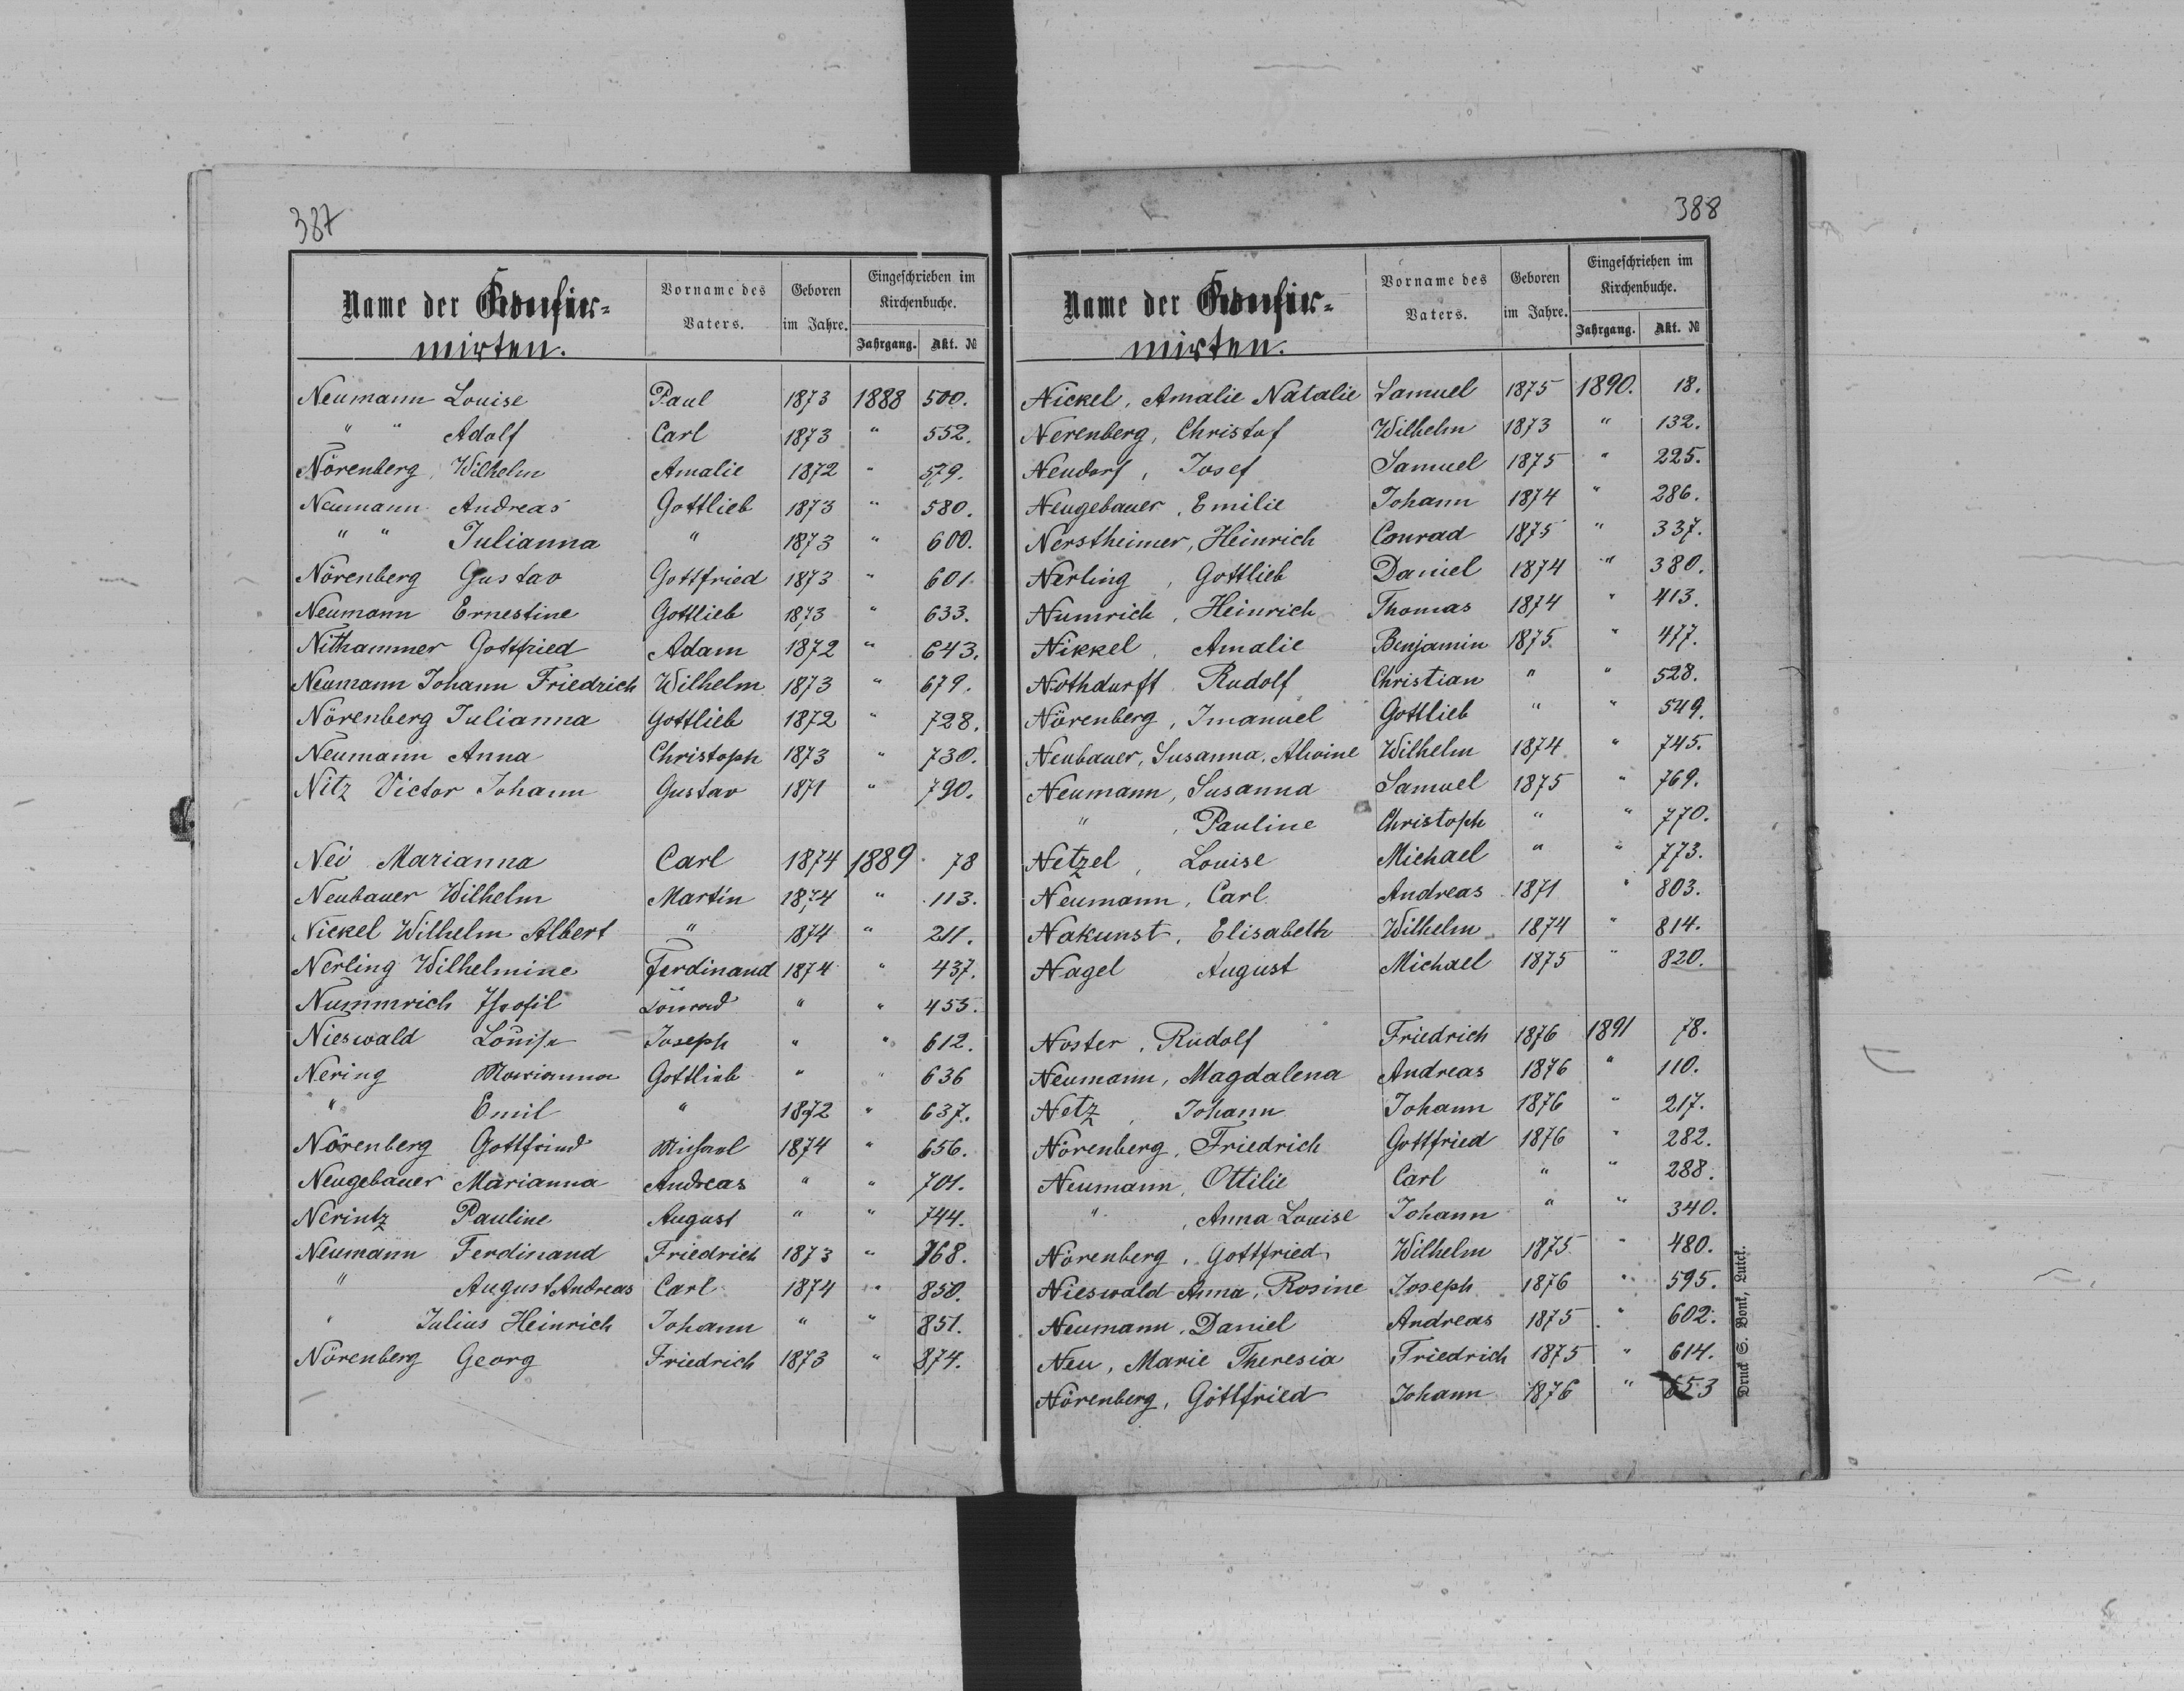 387
Name der Konfir-
mirten.
Vorname des Vaters.
Geboren im Jahre.
Eingeschrieben im Kirchenbuche.
Jahrgang. Akt. №
Neumann Louise Paul 1873 1888 500.
" " Adolf Carl 1873 " 552.
Nörenberg, Wilhelm Amalie 1872 " 579.
Neumann Andreas Gottlieb 1873 " 580.
" " Julianna " 1873 " 600.
Nörenberg Gustav Gottfried 1873 " 601.
Neumann Ernestine Gottlieb 1873 " 633.
Nithammer Gottfried Adam 1872 " 643.
Neumann Johann Friedrich Wilhelm 1873 " 679.
Nörenberg Julianna Gottlieb 1872 " 728.
Neumann Anna Christoph 1873 " 730.
Nitz Victor Johann Gustav 1871 " 790.
Nei Marianna Carl 1874 1889 78
Neubauer Wilhelm Martin 1874 " 113.
Nickel Wilhelm Albert " 1874 " 211.
Nerling Wilhelmine Ferdinand 1874 " 437.
Nummrich Theofil Conrad " " 453.
Nieswald Louise Joseph " " 612.
Nering Marianna Gottlieb " " 636
" Emil " 1872 " 637.
Nörenberg Gottfried Michael 1874 " 656.
Neugebauer Marianna Andreas " " 701.
Nerintz Pauline August " " 744.
Neumann Ferdinand Friedrich 1873 " 768.
" August Andreas Carl 1874 " 850.
" Julius Heinrich Johann " " 851.
Nörenberg Georg Friedrich 1873 " 874.
388
Name der Konfir-
mirten.
Vorname des Vaters.
Geboren im Jahre.
Eingeschrieben im Kirchenbuche.
Jahrgang. Akt. №
Nickel, Amalie Natalie Samuel 1875 1890. 18.
Nerenberg, Christof Wilhelm 1873 " 132.
Neudorf, Josef Samuel 1875 " 225.
Neugebauer, Emilie Johann 1874 " 286.
Nerstheimer, Heinrich Conrad 1875 " 337.
Nerling, Gottlieb Daniel 1874 " 380.
Numrich, Heinrich Thomas 1874 " 413.
Nikkel, Amalie Benjamin 1875. " 477.
Nothdurft Rudolf Christian " " 528.
Nörenberg, Imanuel Gottlieb " " 549.
Neubauer, Susanna, Alwine Wilhelm 1874 " 745.
Neumann, Susanna Samuel 1875 " 769.
" , Pauline Christoph " " 770.
Netzel, Louise Michael " " 773.
Neumann, Carl Andreas 1871 " 803.
Nakunst, Elisabeth Wilhelm 1874 " 814.
Nagel August Michael 1875 " 820.
Noster, Rudolf Friedrich 1876 1891 78.
Neumann, Magdalena Andreas 1876 " 110.
Netz, Johann Johann 1876 " 217.
Nörenberg, Friedrich Gottfried 1876 " 282.
Neumann, Ottilie Carl " " 288.
" , Anna Louise Johann " " 340.
Nörenberg, Gottfried Wilhelm 1875 " 480.
Nieswald Anna, Rosine Joseph 1876 " 595.
Neumann, Daniel Andreas 1875 " 602.
Neu, Marie Theresia Friedrich 1875 " 614.
Nörenberg, Gottfried Johann 1876 " 653
Druck S. Bonk, Luck.